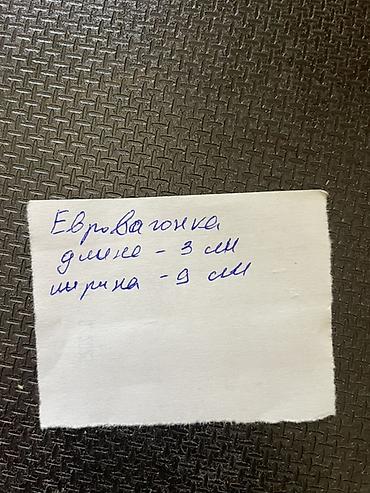 Евровагонка
длина - 3 мм
ширина - 9 мм